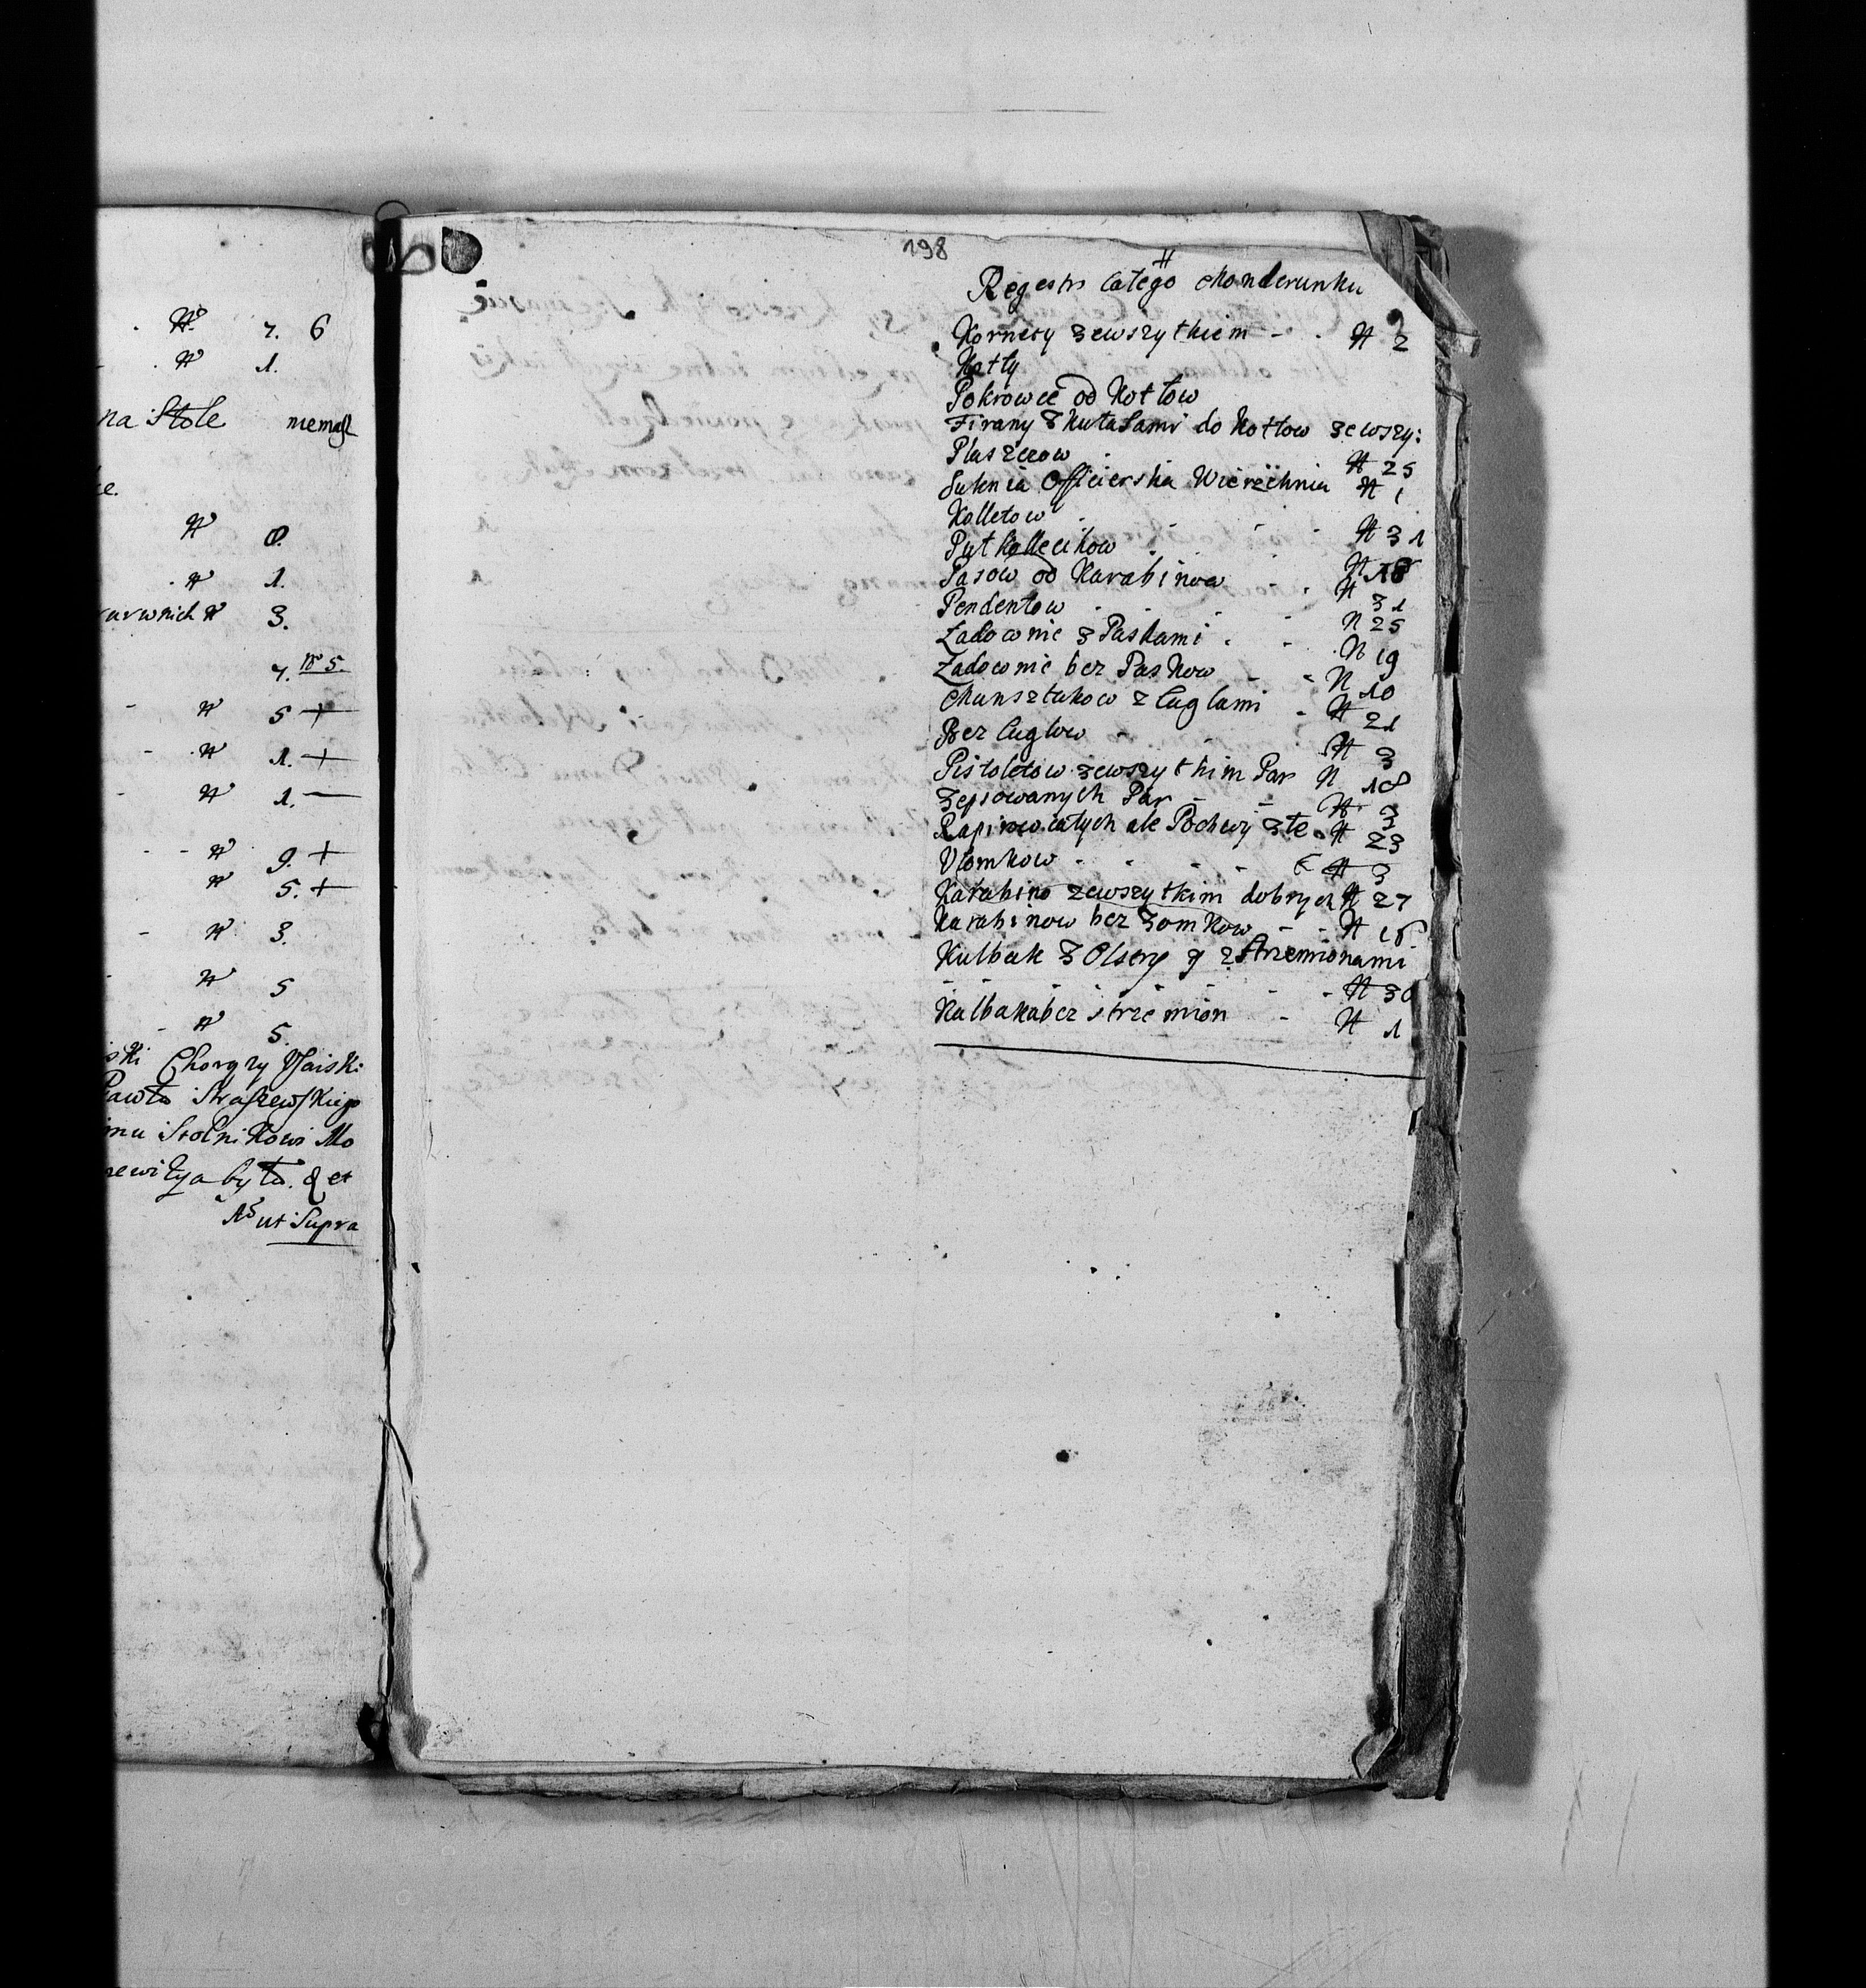 Nº 7. 6
Nº 1.
na Stole niemasz
Nº 8.
Nº 1.
Nº 3.
7. Nº 5.
Nº 5 +
Nº 1. +
Nº 1. —
Nº 9. +
Nº 5. +
Nº 3.
Nº 5
Nº 5.
ski Chorąży
Pawła Straszewskiego
mu Stolnikowi Mo
rewizya była. & et
ut Supra
198
Regestr całego Monderunku
Kornety zewszytkiem - . N 2
Kotły
Pokrowce od Kotłow
Firany z kutasami do Kotłow zewszy:
Płaszczow . N 25
Suknia Officierska Wierzchnia N 1
Kolletow . . - - N 31
Puł kollecikow . N 18
Pasow od Karabinow - . N 31
Pendentow . . - - N 25
Ładownic z Paskami . - . N 19
Ładownic bez Paskow - - N 10
Munsztukow z Cuglami - N 21
Bez Cuglow - - N 3
Pistoletow zewszytkim Par N 18
Zepsowanych Par - - N 3
Rapirow całych ale Pochwy złe . N 23
Ułomkow - - - - N 3
Karabino zewszytkim dobrych N 27
Karabinow bez Zomkow - - N
Kulbak z Olstry y z Strzemionami
- - - - - - - N 30
Kulbaka bez strzemion - N 1